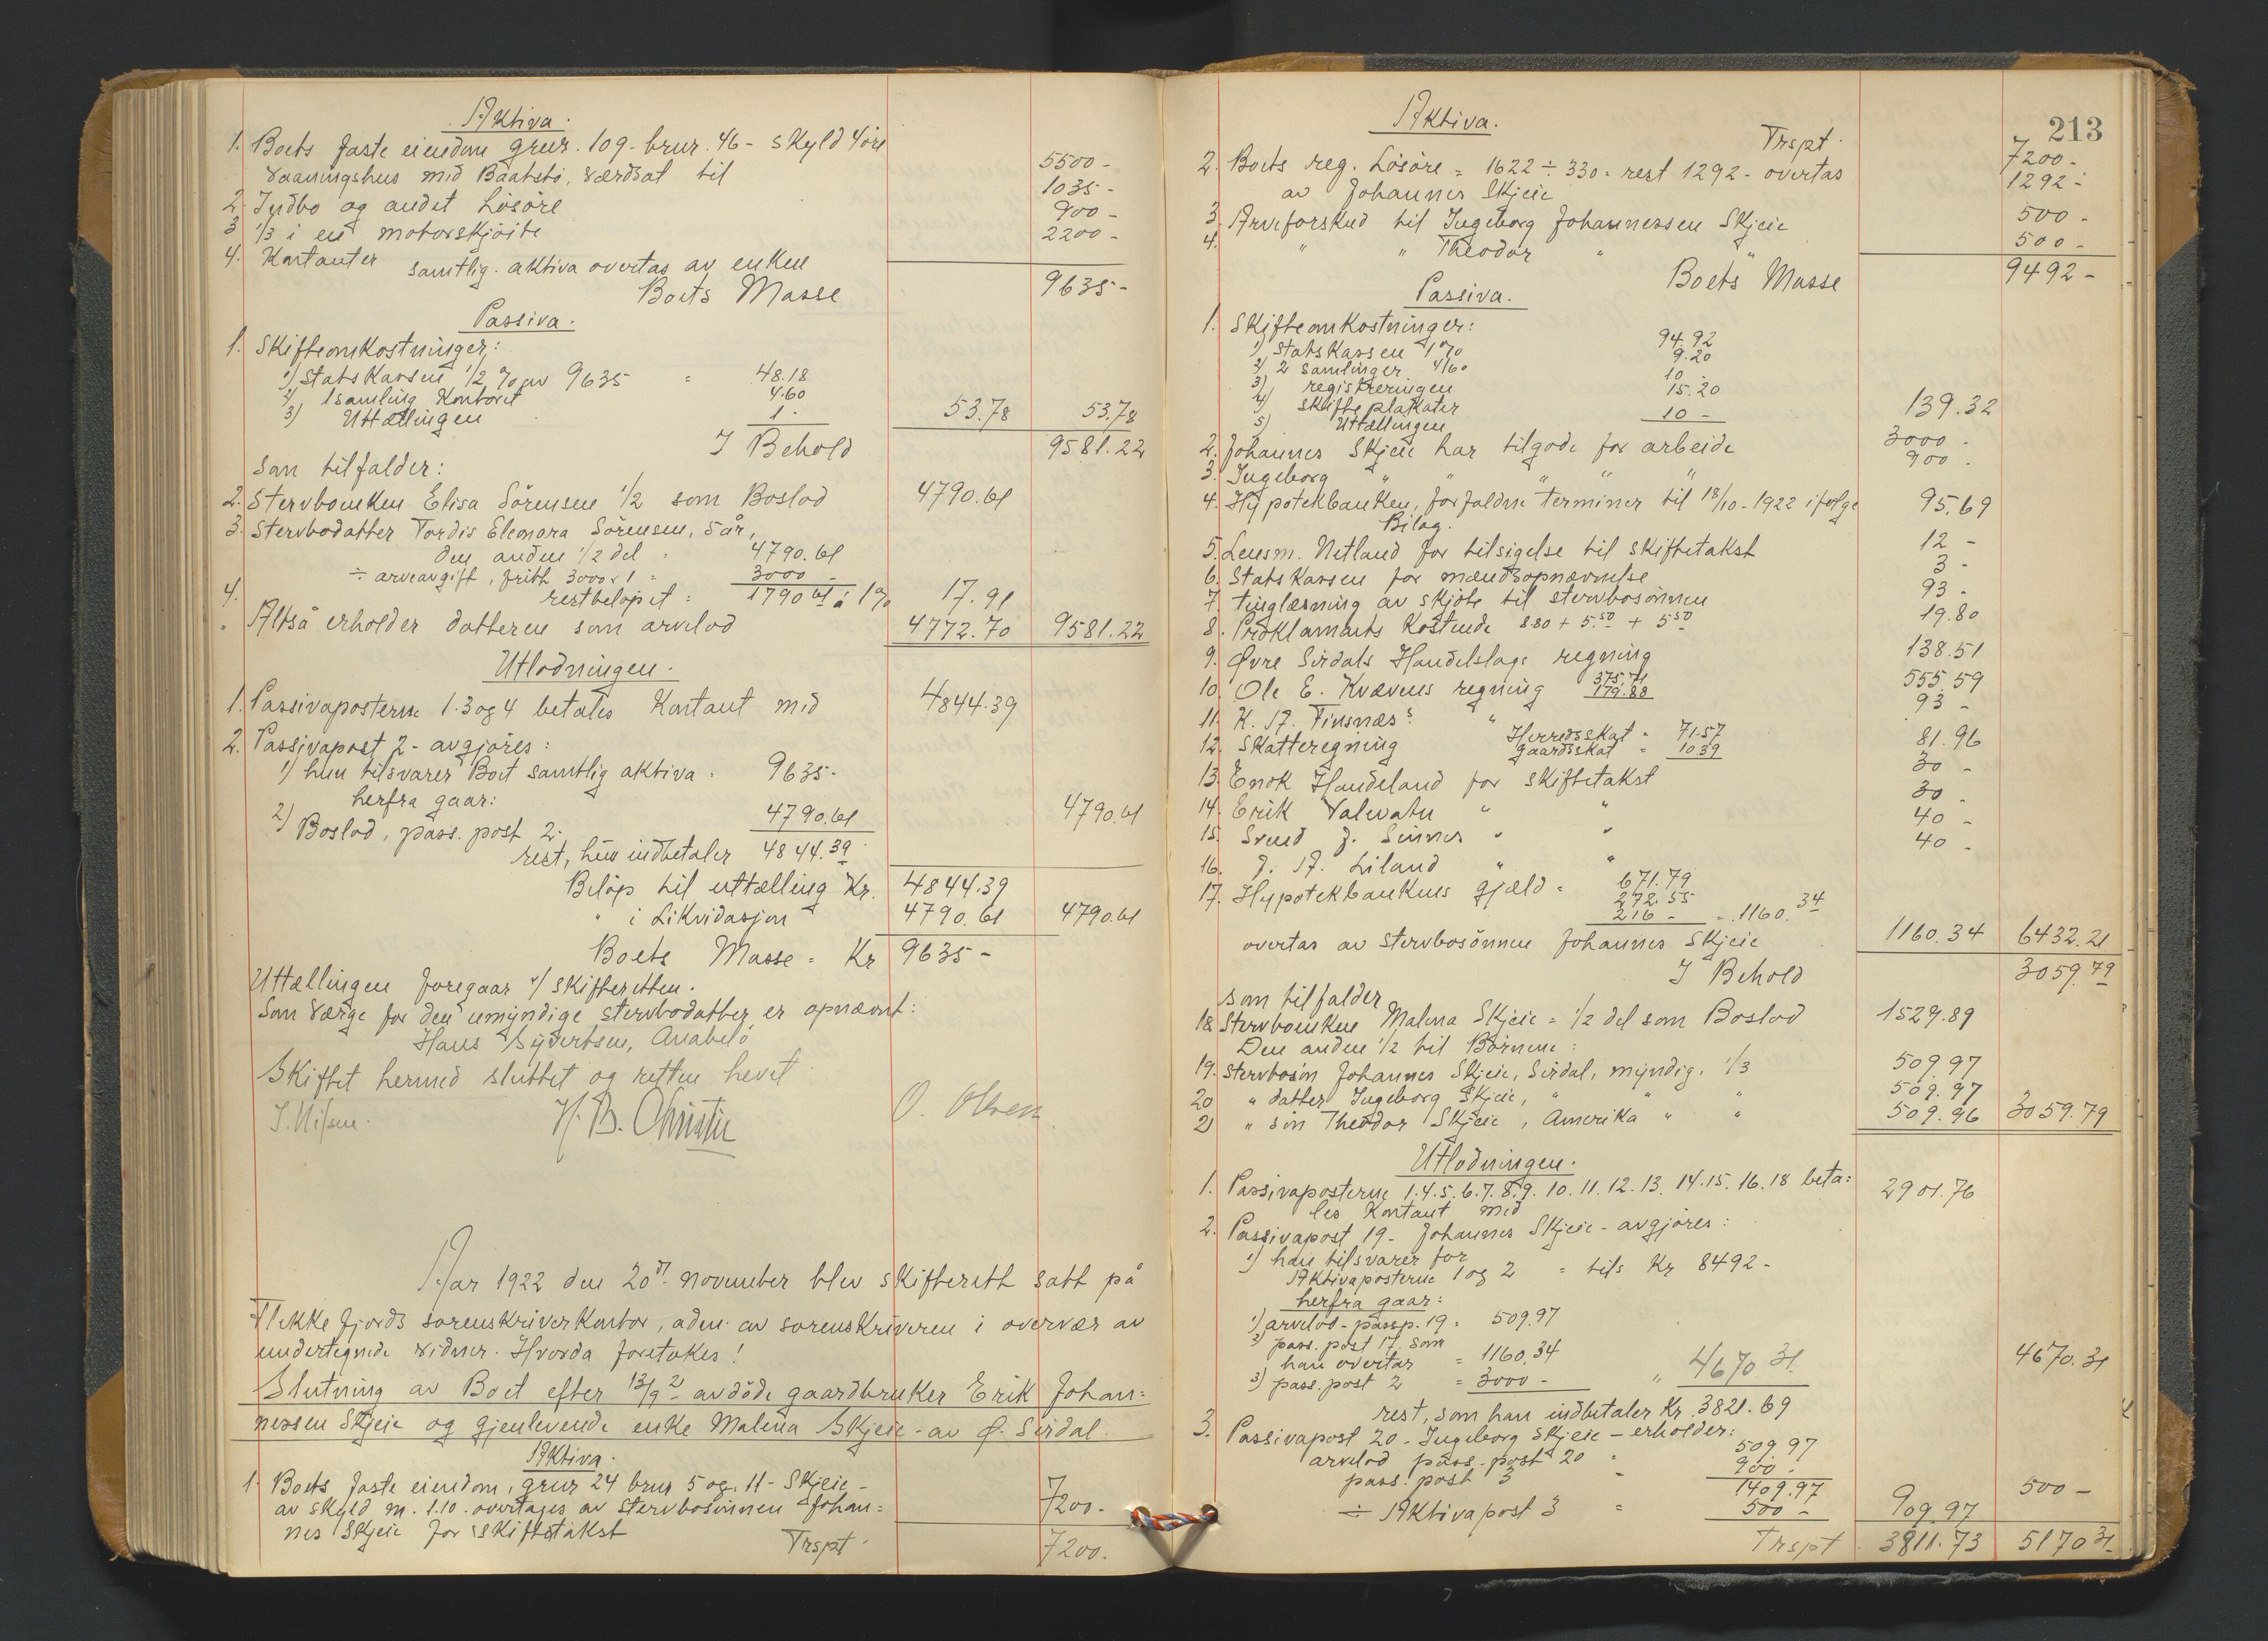 Aktiva.
1. Boets faste eiendom grnr. 109 - brnr. 46 - skyld 4 øre
Vaaningshus med Baatstø, værdsat til 5500 -
2. Indbo og andet Løsøre 1035 -
3 1/3 i en motorskjøite 900 -
4. Kontanter 2200 -
samtlig. aktiva overtas av enken
Boets Masse 9635 -
Passiva.
1. Skifteomkostninger:
1) Statskassen 1/2 % av 9635 = 48.18
2) 1 samling Kontoret 4.60
3) Uttællingen 1 - 53.78 53.78
I Behold 9581.22
som tilfalder:
2. Stervboenken Elisa Sørensen 1/2 som Boslod 4790.61
3. Stervbodatter Tordis Eleonora Sørensen, 5 år,
den anden 1/2 del = 4790.61
÷ arveavgift, fritt 3000 x 1 = 3000 -
4. restbeløpet = 1790 61 à 1 % 17.91
Altså erholder datteren som arvelod 4772.70 9581.22
Utlodningen.
1. Passivaposterne 1. 3 og 4 betales Kontant med 4844.39
2. Passivapost 2 - avgjøres:
1) hun tilsvarer Boet samtlig aktiva = 9635 -
herfra gaar:
2) Boslod, pass. post 2. 4790.61 4790.61
rest, hun indbetaler 4844.39
Beløp til uttælling Kr. 4844.39
" i Likvidasjon 4790.61 4790.61
Boets Masse = Kr 9635 -
Uttællingen foregaar v/ skifteretten.
Som Værge for den umyndige stervbodatter er opnævnt:
Hans Syvertsen, Anabelø
Skiftet hermed sluttet og retten hevet
J. Nilsen. H. B. Christie O. Olsen
Aar 1922 den 20de november blev skifterett satt på
Flekkefjords sorenskriverkontor, adm. av sorenskriveren i overvær av
undertegnede vidner. Hvorda foretokes!
Slutning av Boet efter 13/9 21 avdøde gaardbruker Erik Johan=
nessen Skjeie og gjenlevende enke Malena Skjeie - av Ø. Sirdal.
Aktiva.
1. Boets faste eiendom, grnr 24 brnr 5 og 11 - Skjeie -
av skyld m. 1.10. overtages av stervbosønnen Johan=
nes Skjeie for skiftetakst 7200 -
Trspt 7200.
213
Aktiva.
Trspt. 7200 -
2. Boets reg. Løsøre = 1622 ÷ 330 = rest 1292 - overtas
av Johannes Skjeie 1292 -
3. Arveforskud til Ingeborg Johannessen Skjeie 500 -
4. " " Theodor " " 500 -
Boets Masse 9492 -
Passiva.
1. Skifteomkostninger:
1) Statskassen 1 % 94.92
2) 2 samlinger 4/60 9.20
3) registreringen 10
4) skifteplakater 15.20
5) Uttællingen 10 - 139.32
2. Johannes Skjeie har tilgode for arbeide 3000 -
3. Ingeborg " " " " " 900 -
4. Hypotekbanken, forfaldne terminer til 18/10 - 1922 ifølge
Bilag. 95.69
5. Lensm. Netland for tilsigelse til skiftetakst 12 -
6. Statskassen for mændsopnævnelse 3 -
7. tinglæsning av skjøte til stervbosønnen 93 -
8. Proklamaets Kostende 8.80 + 5.50 + 5 50 19.80
9. Øvre Sirdals Handelslags regning 138.51
10. Ole E. Kvævens regning 375.71
179.88 555.59
11. K. A. Finsnæs' " 93 -
12. Skatteregning Herredsskat = 71.57
gaardsskat = 10 39 81.96
13. Enok Haudeland for skiftetakst 30 -
14. Erik Valevatn " " 30 -
15. Svend J. Sinnes " " 40 -
16. J. A. Liland " " 40 -
17. Hypotekbankens gjæld = 671.79
272.55
216 - = 1160.34
overtas av stervbosønnen Johannes Skjeie 1160.34 6432.21
I Behold 3059.79
som tilfalder
18 Stervboenken Malena Skjeie = 1/2 del som Boslod 1529.89
Den anden 1/2 til Børnene:
19. Stervbosøn Johannes Skjeie, Sirdal, myndig, 1/3 509.97
20 " datter Ingeborg Skjeie, " " " 509.97
21 " søn Theodor Skjeie, Amerika " " 509.96 3059.79
Utlodningen.
1. Passivaposterne 1.4.5.6.7.8.9. 10. 11. 12. 13. 14. 15. 16. 18 beta=
les Kontant med 2901.76
2. Passivapost 19 - Johannes Skjeie - avgjøres:
1) han tilsvarer for
Aktivaposterne 1 og 2 = tils Kr 8492 -
herfra gaar:
1) arvelod - passp. 19 = 509.97
2) pass. post 17. som
han overtar = 1160.34
3) pass. post 2 = 3000 - " 4670 31 4670.31
rest, som han indbetaler Kr. 3821.69
3. Passivapost 20 - Ingeborg Skjeie - erholder:
arvelod pass. post 20 = 509.97
pass. post 3 - 900 -
1409.97
÷ Aktivapost 3 = 500 - 909.97 500 -
Trspt. 3811.73 5170 31